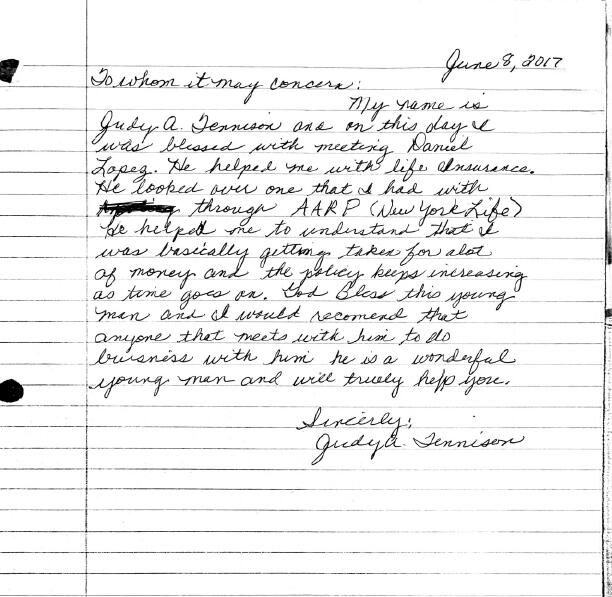 June 8, 2017
To whom it may concern:
My name is
Judy A. Tennison and on this day I
was blessed with meeting Daniel
Lopez. He helped me with life insurance.
He looked over one that I had with
through AARP (New York Life)
He helped me to understand that I
was basically getting taken for alot
of money and the policy keeps increasing
as time goes on. God Bless this young
man and I would recomend that
anyone that meets with him to do
buisness with him he is a wonderful
young man and will truely help you.
Sincerly;
Judy A. Tennison